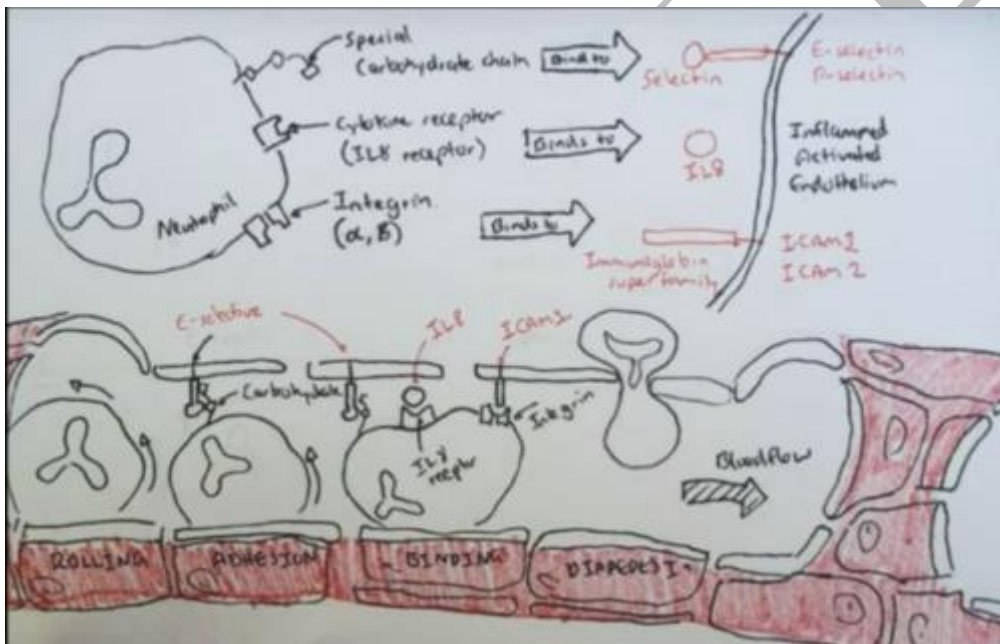 Special
Carbohydrate chain
Bind to
Selectin
E-selectin
P-selectin
Cytokine receptor
(IL8 receptor)
Binds to
IL8
Inflammed
Activated
Endothelium
Neutophil
Integrin
(α, β)
Binds to
Immunoglobin
superfamily
ICAM1
ICAM 2
E-selective
IL8
ICAM1
Carbohydrate
IL8
receptr
Integrin
Bloodflow
ROLLING
ADHESION
BINDING
DIAPEDESI